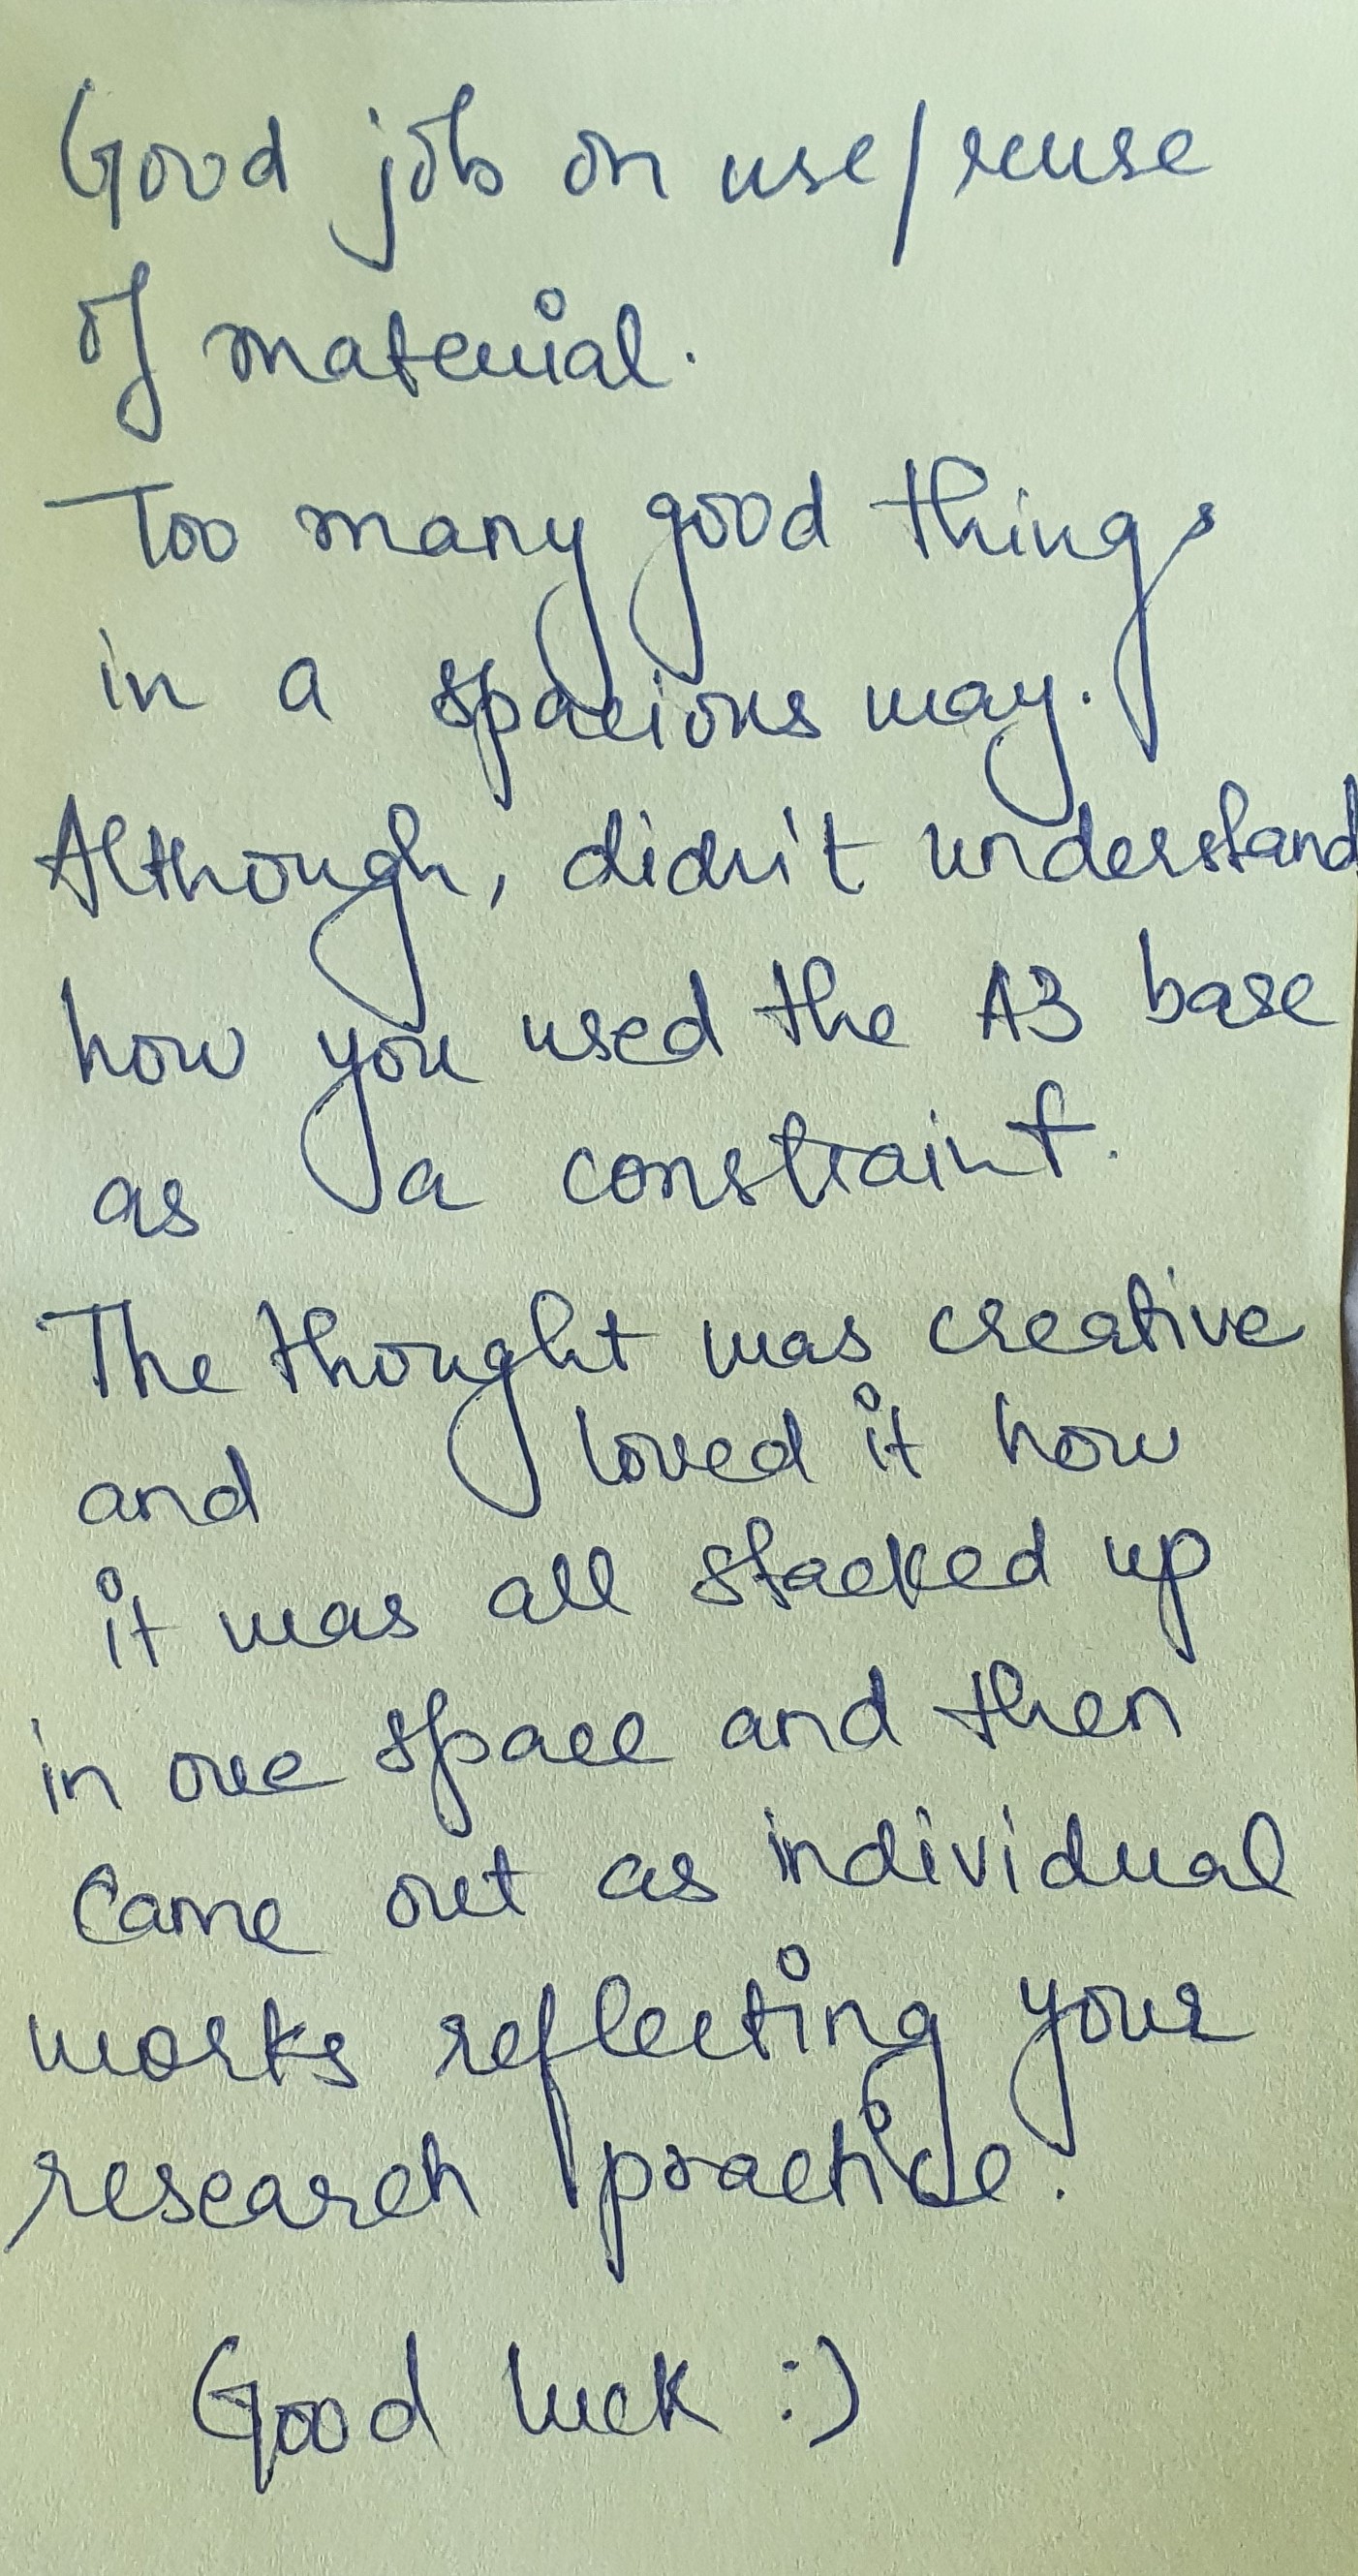 Good job on use/reuse
of material.
Too many good things
in a spacious way.
Although, didn't understand
how you used the A3 base
as a constraint.
The thought was creative
and loved it how
it was all stacked up
in one space and then
came out as individual
works reflecting your
research practice.
Good luck :)